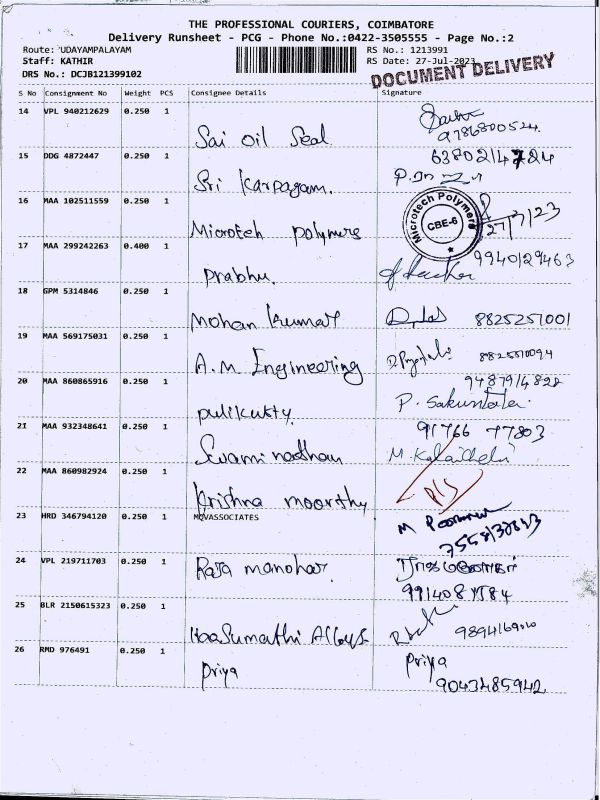 THE PROFESSIONAL COURIERS, COIMBATORE
Delivery Runsheet - PCG - Phone No.:0422-3505555 - Page No.:2
Route: UDAYAMPALAYAM
RS No.: 1213991
Staff: KATHIR
RS Date: 27-Jul-2023
DRS No.: DCJB121399102
DOCUMENT DELIVERY
S No Consignment No Weight PCS Consignee Details Signature
14 VPL 940212629 0.250 1
Sai Oil Seal
9786800524
15 DDG 4872447 0.250 1
6380214724
Sri Karpagam.
16 MAA 102511559 0.250 1
Microtech Polymers
CBE-6
27/7/23
Microteh polymers
17 MAA 299242263 0.400 1
9940129463
Prabhu.
18 GPM 5314846 0.250 1
Mohan Kumar
8825251001
19 MAA 569175031 0.250 1
8825510094
A.M. Engineering
20 MAA 860865916 0.250 1
9487914822
pulikutty.
P. Sakuntala.
21 MAA 932348641 0.250 1
91766 77803
Swaminadhan
22 MAA 860982924 0.250 1
Krishna moorthy
23 HRD 346794120 0.250 1 MQVASSOCIATES
24 VPL 219711703 0.250 1
Raja manohar.
25 BLR 2150615323 0.250 1
Alloys
26 RMD 976491 0.250 1
Priya
Priya
9043485942